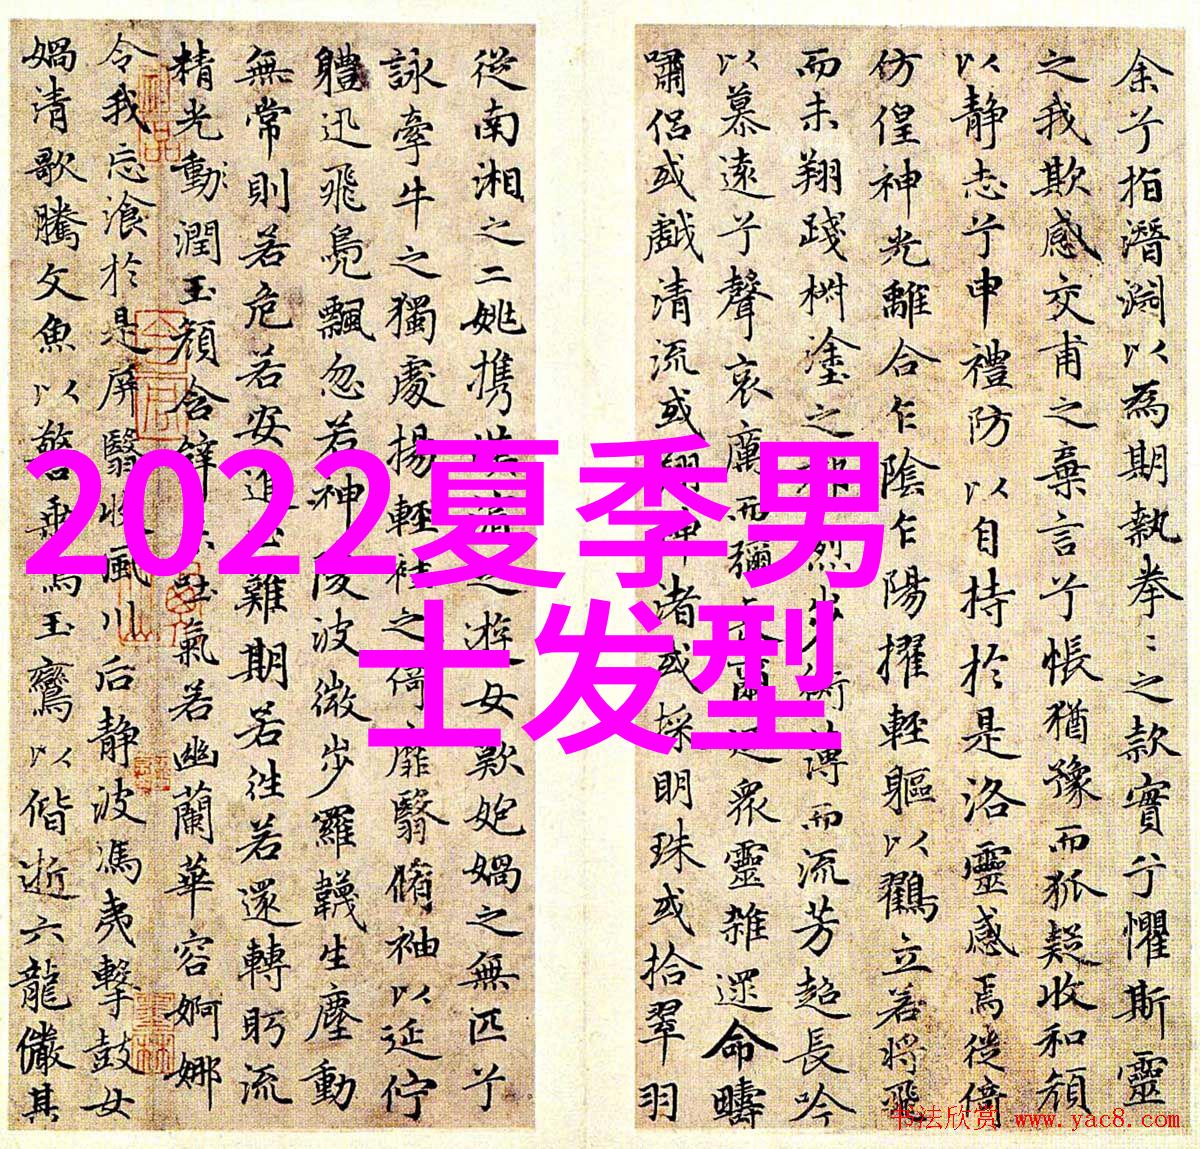 余兮指潛淵以為期執拳〻之款實兮懼斯靈
之我欺感交甫之棄言兮悵猶豫而狐疑收和顏
以靜志兮申禮防以自持於是洛靈感焉徙倚
仿偟神光離合乍陰乍陽擢輕軀以鶴立若將飛
而未翔踐椒塗之烈步蘅薄而流芳超長吟
以慕遠兮聲哀厲而彌長爾迺眾靈雜遝命疇
嘯侶或戲清流或翔神渚或採明珠或拾翠羽
從南湘之二姚攜之游女歎匏媧之無匹兮
詠牽牛之獨處揚輕袿之倚靡翳脩袖以延佇
體迅飛鳧飄忽若神陵波微步羅韈生塵動
無常則若危若安進難期若往若還轉眄流
精光動潤玉顏含辭吐氣若幽蘭華容婀娜
令我忘湌於是屏翳收風川后靜波馮夷擊鼓女
媧清歌騰文魚以警乘鳴玉鸞以偕逝六龍儼其
2022夏季男
士发型
书法欣赏 www.yac8.com